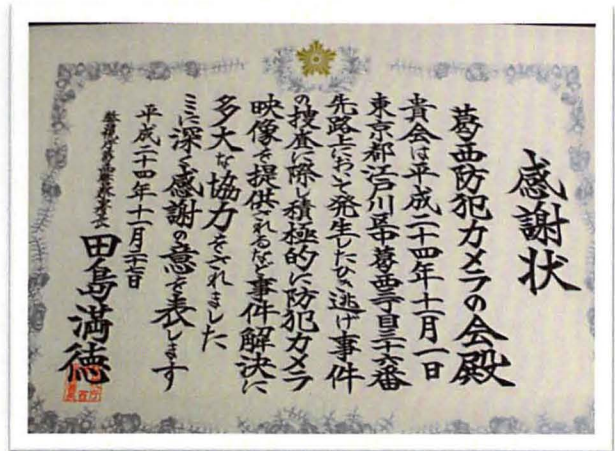 感謝状
葛西防犯カメラの会殿
貴会は平成二十四年十一月一日
東京都江戸川区中葛西三丁目三十六番
先路上において発生したひき逃げ事件
の捜査に際し積極的に防犯カメラ
映像を提供されるなど事件解決に
多大な協力をされました
ここに深く感謝の意を表します
平成二十四年十一月
田島満徳